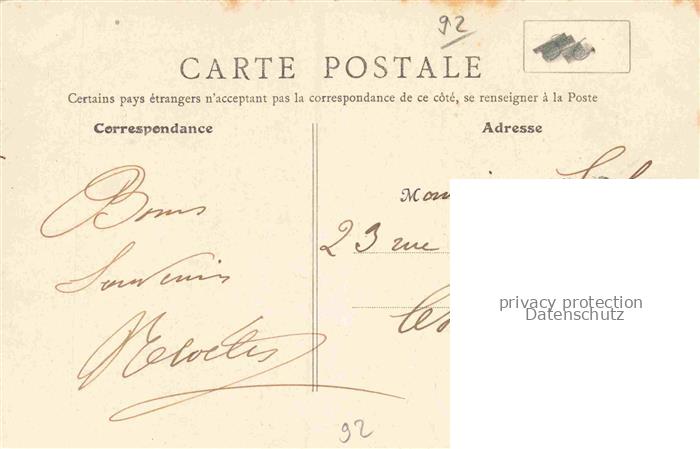 92
CARTE POSTALE
Certains pays étrangers n'acceptant pas la correspondance de ce côté, se renseigner à la Poste
Correspondance
Adresse
Bons
Souvenirs
23 rue
privacy protection
Datenschutz
92